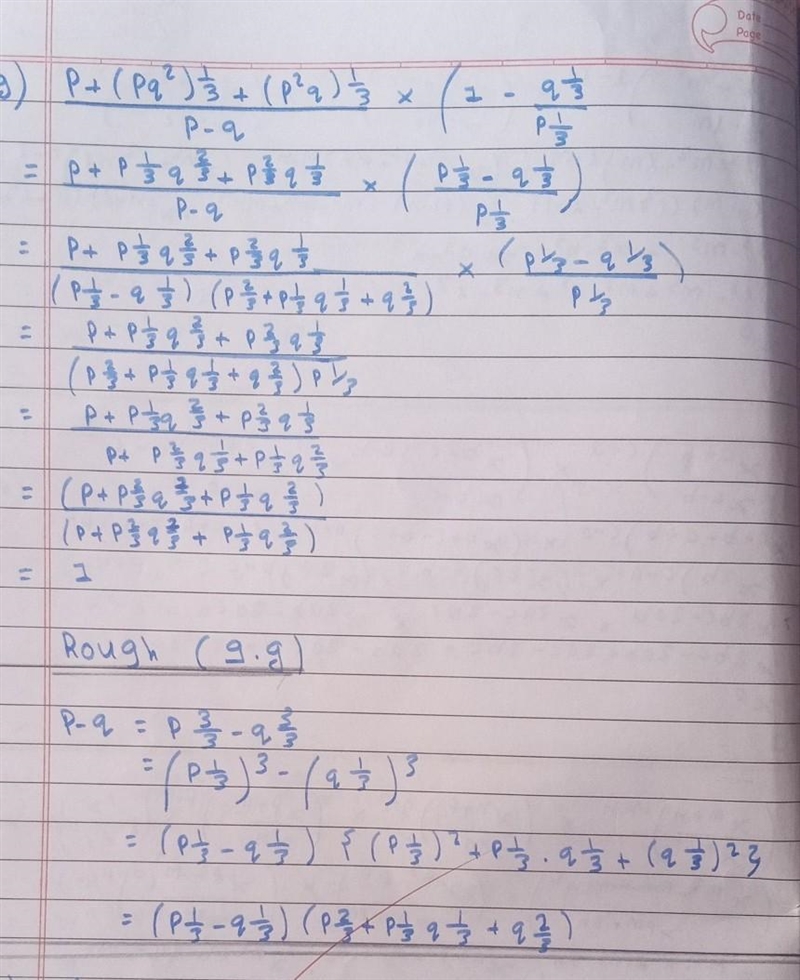 Date
Page
g) P + (Pq²)^1/3 + (P²q)^1/3 / P - q × ( 1 - q^1/3 / P^1/3
= P + P^1/3 q^2/3 + P^2/3 q^1/3 / P - q × ( P^1/3 - q^1/3 / P^1/3 )
= P + P^1/3 q^2/3 + P^2/3 q^1/3 / (P^1/3 - q^1/3) (P^2/3 + P^1/3 q^1/3 + q^2/3) × ( P^1/3 - q^1/3 / P^1/3 )
= P + P^1/3 q^2/3 + P^2/3 q^1/3 / (P^2/3 + P^1/3 q^1/3 + q^2/3) P^1/3
= P + P^1/3 q^2/3 + P^2/3 q^1/3 / P + P^2/3 q^1/3 + P^1/3 q^2/3
= (P + P^2/3 q^2/3 + P^1/3 q^2/3) / (P + P^2/3 q^2/3 + P^1/3 q^2/3)
= 1
Rough (g.g)
P - q = P^3/3 - q^3/3
= (P^1/3)^3 - (q^1/3)^3
= (P^1/3 - q^1/3) { (P^1/3)² + P^1/3 . q^1/3 + (q^1/3)² }
= (P^1/3 - q^1/3) (P^2/3 + P^1/3 q^1/3 + q^2/3)